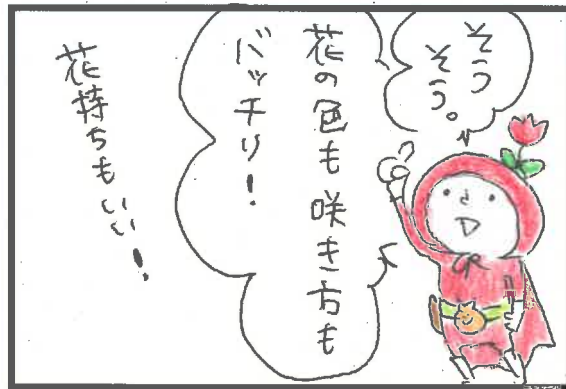 そう
そう。
花の色も咲き方も
バッチリ！
花持ちもいい！